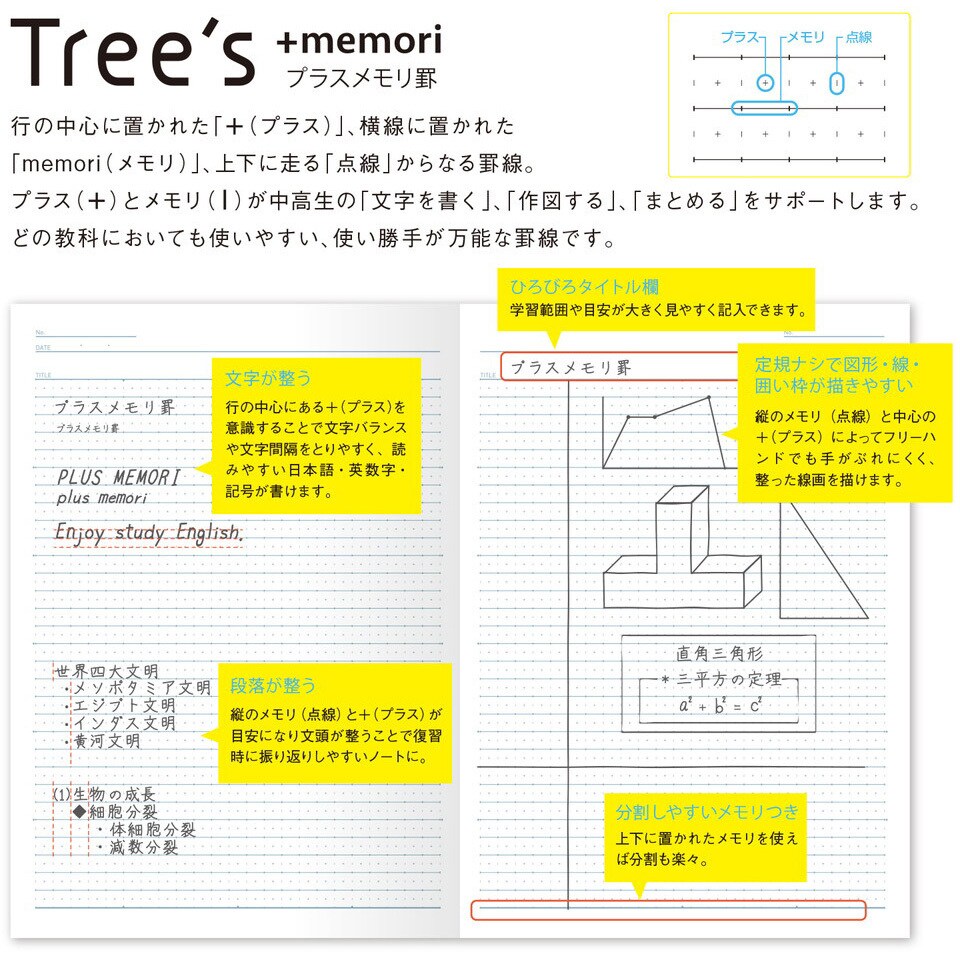 Tree's +memori
プラスメモリ罫
プラス メモリ 点線
行の中心に置かれた「＋（プラス）」、横線に置かれた
「memori（メモリ）」、上下に走る「点線」からなる罫線。
プラス（＋）とメモリ（|）が中高生の「文字を書く」、「作図する」、「まとめる」をサポートします。
どの教科においても使いやすい、使い勝手が万能な罫線です。
ひろびろタイトル欄
学習範囲や目安が大きく見やすく記入できます。
No.
DATE
TITLE
プラスメモリ罫
プラスメモリ罫
PLUS MEMORI
plus memori
Enjoy study English.
文字が整う
行の中心にある＋（プラス）を
意識することで文字バランス
や文字間隔をとりやすく、読
みやすい日本語・英数字・
記号が書けます。
世界四大文明
・メソポタミア文明
・エジプト文明
・インダス文明
・黄河文明
段落が整う
縦のメモリ（点線）と＋（プラス）が
目安になり文頭が整うことで復習
時に振り返りしやすいノートに。
(1)生物の成長
◆細胞分裂
・体細胞分裂
・減数分裂
No.
TITLE
プラスメモリ罫
定規ナシで図形・線・
囲い枠が描きやすい
縦のメモリ（点線）と中心の
＋（プラス）によってフリーハ
ンドでも手がぶれにくく、
整った線画を描けます。
直角三角形
＊三平方の定理
a² + b² = c²
分割しやすいメモリつき
上下に置かれたメモリを使え
ば分割も楽々。